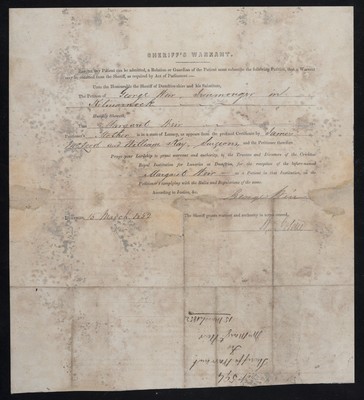 SHERIFF'S WARRANT.
Before any Patient can be admitted, a Relation or Guardian of the Patient must subscribe the following Petition, that a Warrant
may be obtained from the Sheriff, as required by Act of Parliament:—
Unto the Honourable the Sheriff of Dumfriesshire and his Substitute,
The Petition of George Weir Ironmonger in
Kilmarnock
Humbly Sheweth,
That Margaret Weir
Petitioner's Mother is in a state of Lunacy, as appears from the prefixed Certificate by James
and William Surgeons and the Petitioner therefore
Prays your Lordship to grant warrant and authority to the Trustees and Directors of the Crichton
Royal Institution for Lunatics at Dumfries, for the reception of the before-named
Margaret Weir as a Patient in that Institution; all the
Petitioner's complying with the Rules and Regulations of the same.
According to Justice, &c.
George Weir
March 1853
The Sheriff grants warrant and authority to receive as craved,
Sheriffs Warrant
for
Mrs Marg Weir
March 1853